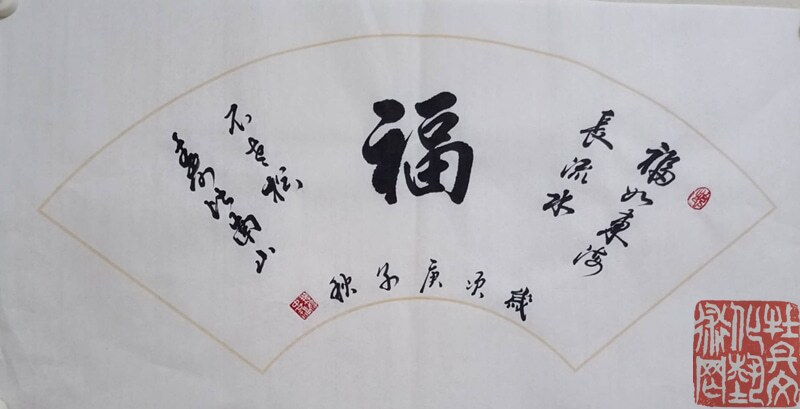 福如東海
長流水
福
壽比南山
不老松
歲次庚子秋